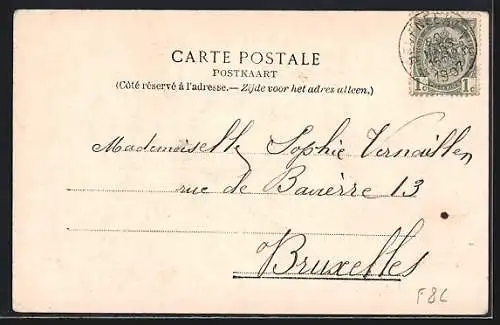 CARTE POSTALE
POSTKAART
(Côté réservé à l'adresse. — Zijde voor het adres alleen.)
1c 1c
1907
Mademoiselle Sophie Vernaillen
rue de Bavière 13
Bruxelles
F8L